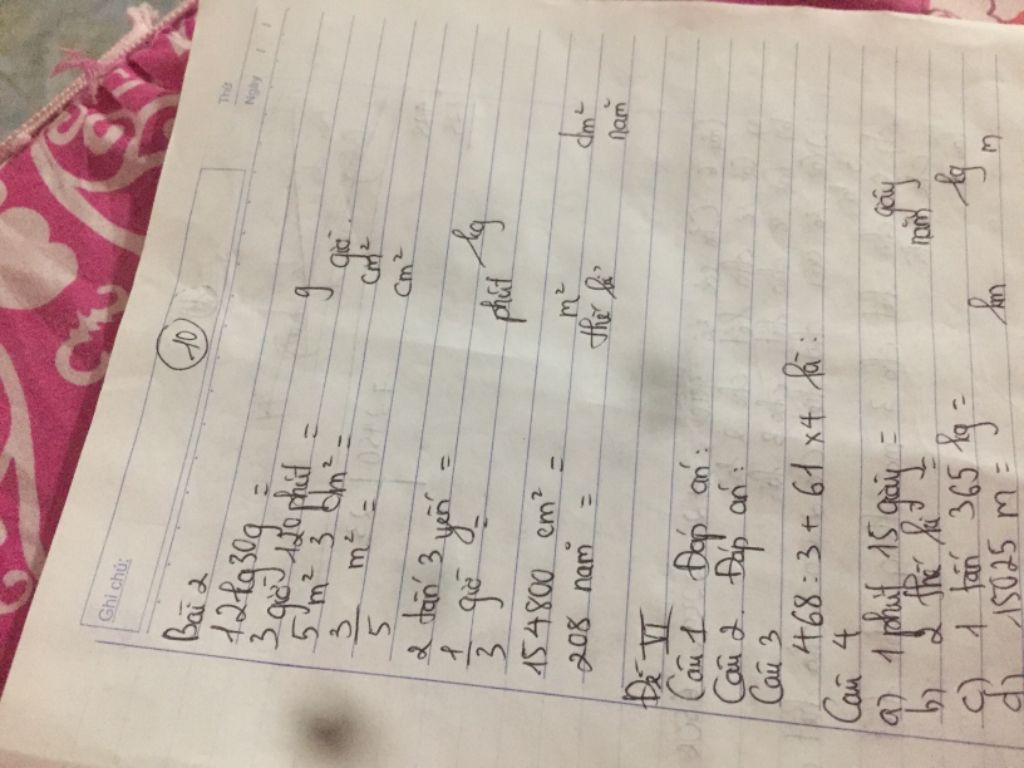 Thứ
Ngày
Ghi chú:
10
Bài 2
12kg30g = g
3 giờ 120 phút = giờ.
5 m² 3 dm² = cm²
3/5 m² = cm²
2 tấn 3 yến = kg
1/3 giờ = phút
154800 cm² = m² dm²
208 năm = thế kỉ năm
Đề VI
Câu 1 Đáp án:
Câu 2. Đáp án:
Câu 3
468 : 3 + 61 × 4 là :
Câu 4
a) 1 phút 15 giây = giây
b) 2 thế kỉ = năm
c) 1 tấn 365 kg = kg
d) 15025 m = km m